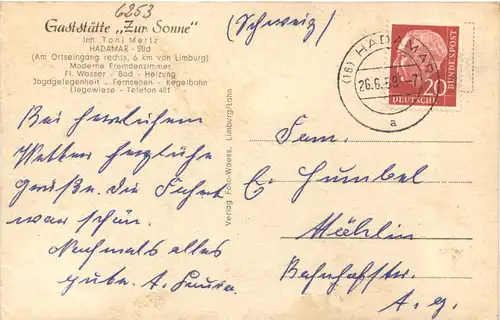 6253
Gaststätte „Zur Sonne"
Inh. Toni Mertz
HADAMAR - Süd
(Am Ortseingang rechts, 6 km von Limburg)
Moderne Fremdenzimmer
Fl. Wasser - Bad - Heizung
Jagdgelegenheit - Fernsehen - Kegelbahn
Liegewiese - Telefon 481
(Schweiz)
(16) HADAMAR
26.6.58 - 7
a
DEUTSCHE BUNDESPOST
20
Bei herrlichem
Wetter herzliche
Grüße. die Fahrt
war schön.
Nochmals alles
gute.
Verlag Foto-Waess, Limburg/Lahn
Fam.
E. Humbel
Möhlin
Bahnhofstr.
A. g.